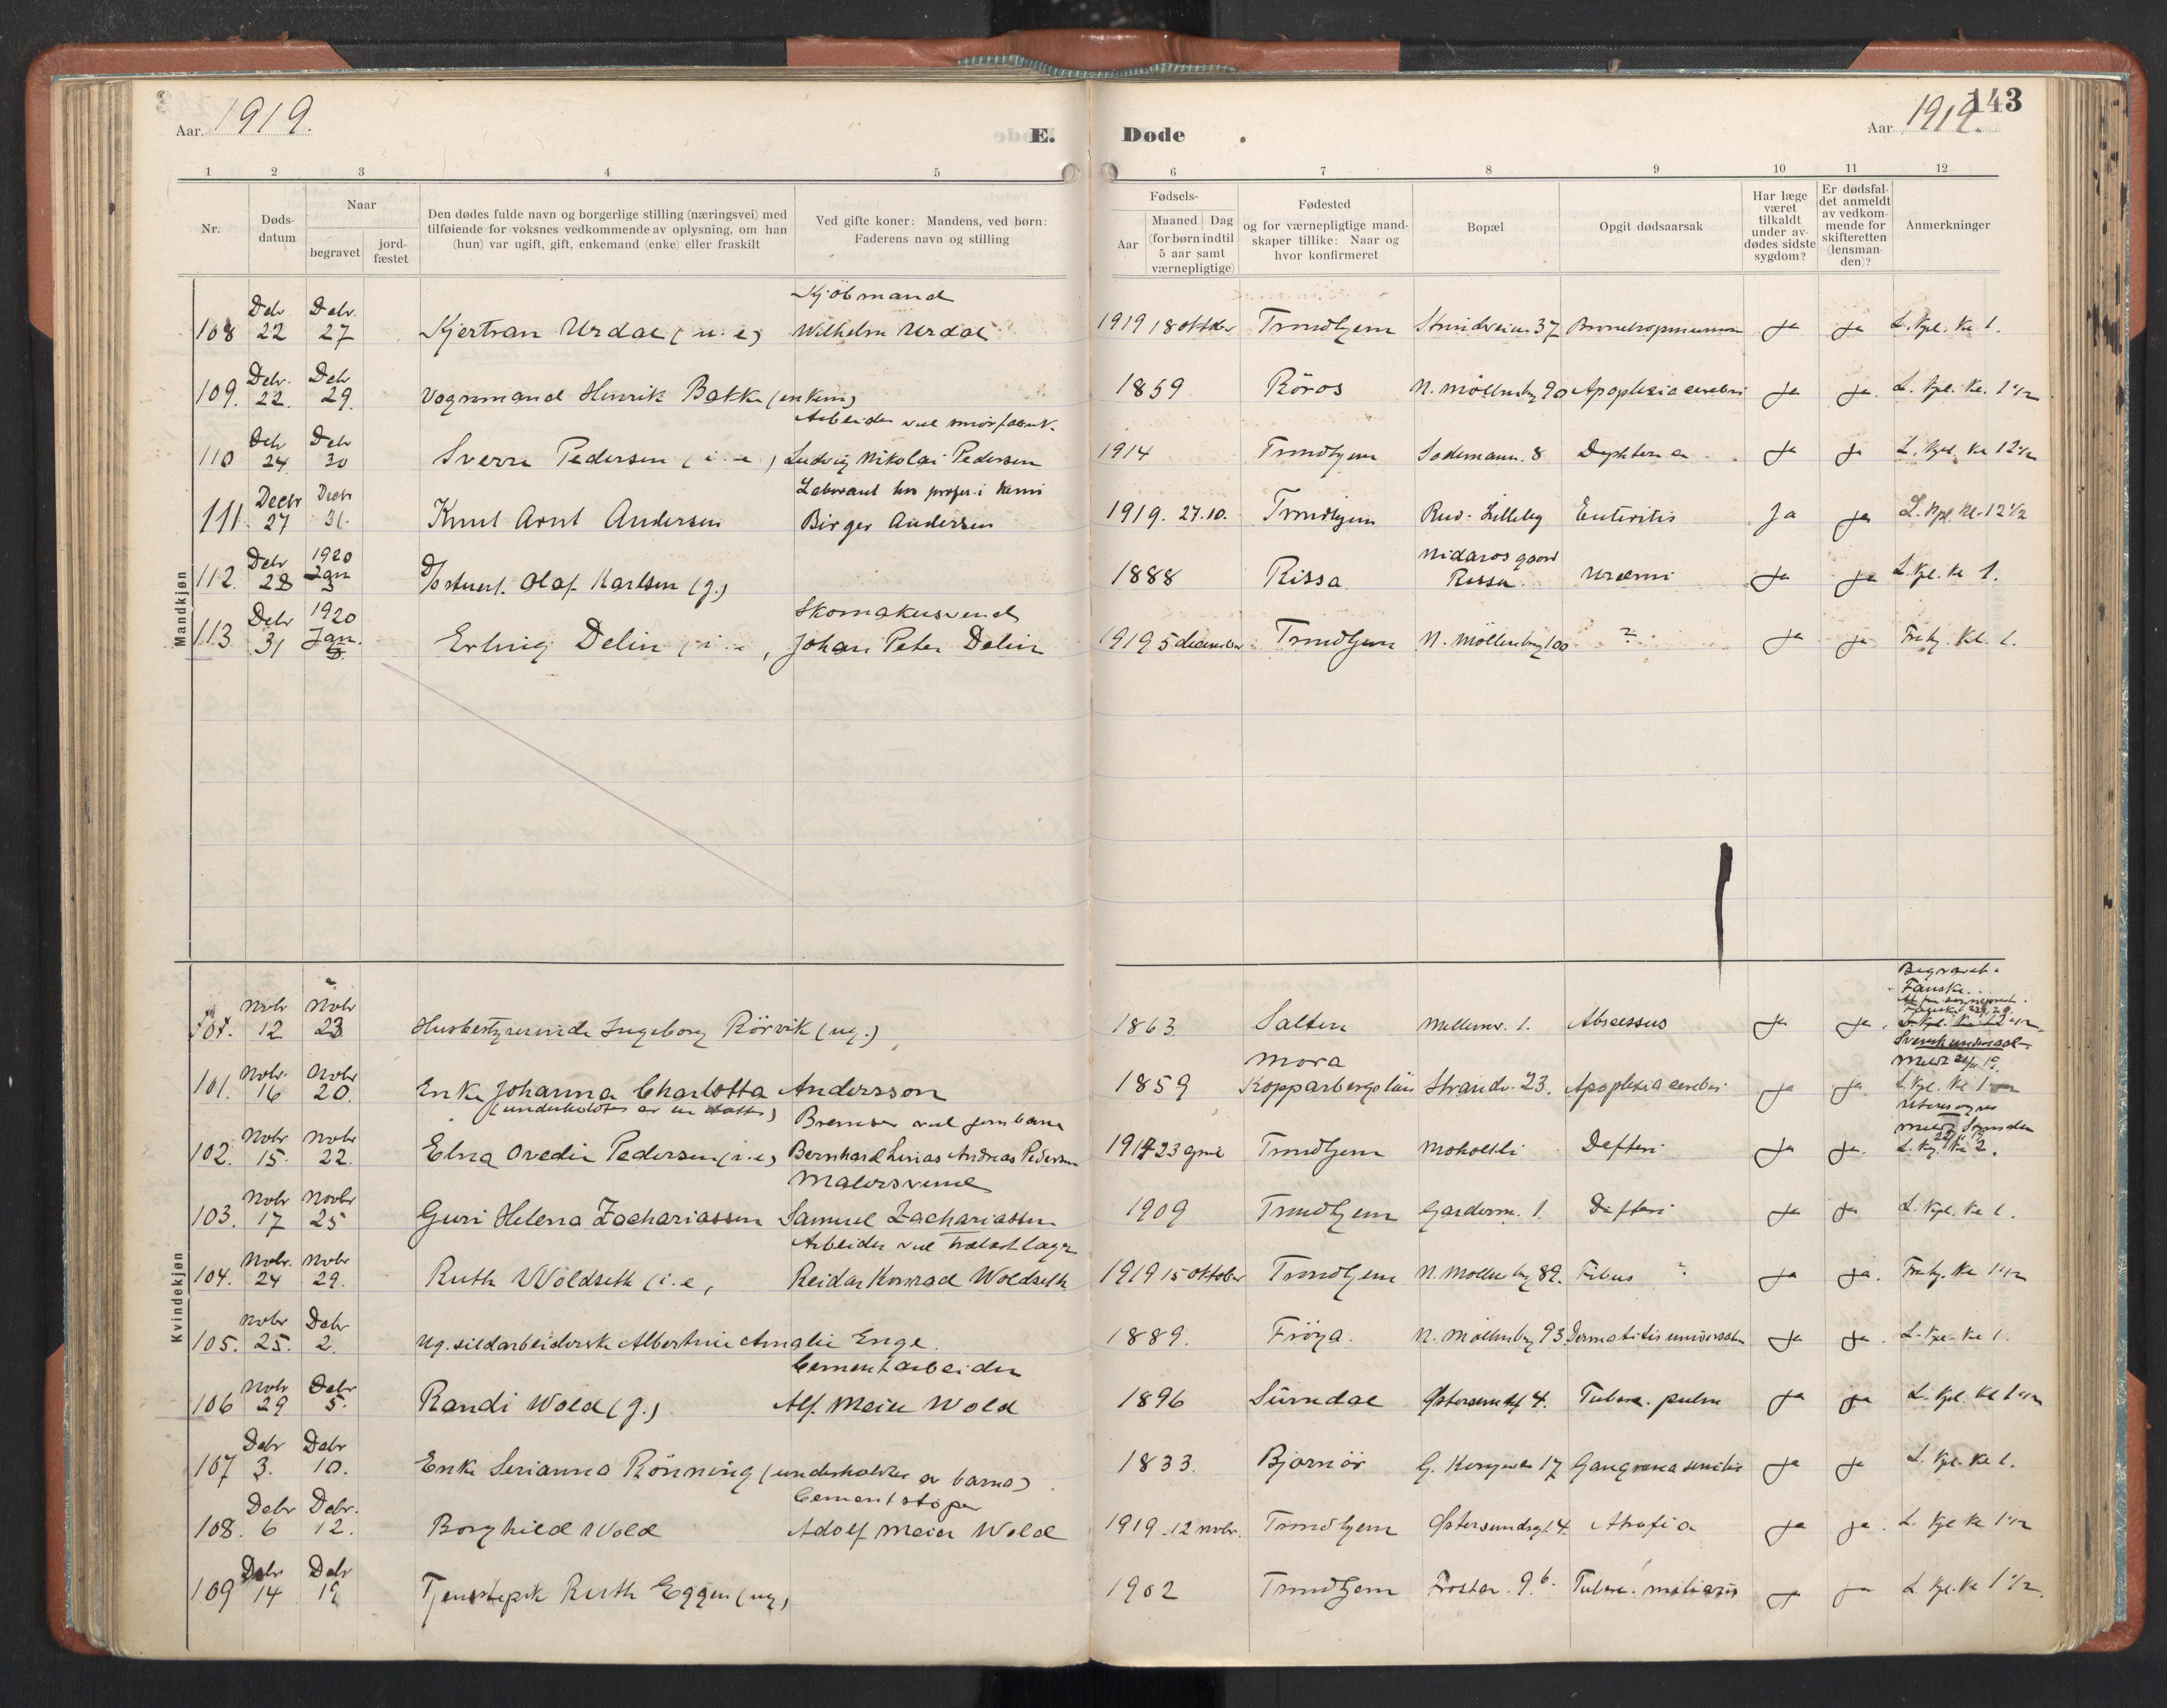 Aar 1919.
E.
Døde
Aar 1919.
143
1 2 3 4 5 6 7 8 9 10 11 12
Nr.
Døds-
datum
Naar
begravet
jord-
fæstet
Den dødes fulde navn og borgerlige stilling (næringsvei) med
tilføiende for voksnes vedkommende av oplysning, om han
(hun) var ugift, gift, enkemand (enke) eller fraskilt
Ved gifte koner: Mandens, ved børn:
Faderens navn og stilling
Fødsels-
Aar
Maaned Dag
(for børn indtil
5 aar samt
værnepligtige)
Fødested
og for værnepligtige mand-
skaper tillike: Naar og
hvor konfirmeret
Bopæl
Opgit dødsaarsak
Har læge
været
tilkaldt
under av-
dødes sidste
sygdom?
Er dødsfal-
det anmeldt
av vedkom-
mende for
skifteretten
(lensman-
den)?
Anmerkninger
Mandkjøn
Debr Debr. Kjöbmand
108 22 27 Kjertran Urdal (u. e) Wilhelm Urdal 1919 18 oktober Trondhjem Strindveien 37 Ja Ja L. Kpl. Kl 1.
Debr. Debr
109. 22. 29. Vognmand Henrik Bakke (enkem) 1859 Röros N. Möllenbg 90 Apoplexia cerebri Ja Ja. L. Kpl. Kl. 1 1/2
Debr Debr Arbeider ved
110 24. 30 Sverre Pedersen (i. e.) Ludvig Nikolai Pedersen 1914 Trondhjem Sodemann. 8 Ja Ja L. Kpl. Kl 12 1/2
Decbr Decbr Laborant hos profes. i kemi
111. 27 31. Knut Arnt Andersen Birger Andersen 1919. 27.10. Trondhjem Lilleby Enteritis Ja Ja L. Kpl. Kl. 12 1/2
Debr 1920 Nidaros gaard
112. 28 Jan 3 Olaf Karlsen (g.) 1888 Rissa Rissa. Uræmi Ja Ja L. Kpl. Kl 1.
Debr 1920 Skomakersvend
113 31 Jan. 3. Erling Delin (i. e, Johan Peter Delin 1919 5 december Trondhjem N. Möllenbg 100 ? Ja Ja Kl. 1.
Kvindekjøn
Novbr Novbr Begravet i
Fauske.
101. 12 23 Husbestyrerinde Ingeborg Rörvik (ug.) 1863 Salten Mellemv. 1. Abscessus Ja Ja.
Novbr. Novbr Mora
101. 16 20. Enke Johanna Charlotta Andersson 1859 Kopparbergs län Strandv. 23. Apoplexia cerebri Ja Ja. L. Kpl. Kl 1
(underholdtes av en datter)
Novbr Novbr Bremser ved jernbane
102. 15. 22. Elna Ovedie Pedersen (i. e) Bernhard Linias Andreas Pedersen 1914 23 april Trondhjem Moholtli Defteri Ja Ja. Kl 2.
Novbr Novbr Malersvend
103. 17 25 Guri Helena Zachariassen Samuel Zachariassen 1909 Trondhjem Garderm. 1. Defteri Ja Ja L. Kpl. Kl 1.
Novbr. Novbr Arbeider ved trælastlager
104. 24 29. Ruth Woldseth (i. e, Reidar Konrad Woldseth 1919 15 oktober Trondhjem N. Möllenbg 89. ? Ja Ja. Kl 1 1/2
Novbr Debr
105. 25. 2. Ug. sildarbeiderske Albertine Amalie Enge. 1889. Fröya. N. Möllenbg 93. Dermatitis universalis Ja Ja. L. Kpl. Kl 1.
Novbr Debr Cementarbeider
106 29 5. Randi Wold (g.) Alf Meier Wold 1896 Surndal Østersundsg 4. Tuberc. pulm Ja Ja L. Kpl. Kl 1 1/2
Debr Debr
107 3. 10. Enke Serianna Rönning (underholdes av barna) 1833. Bjørnör G. Kongevei 17 Gangrena senilis Ja Ja L. Kpl. Kl 1.
Debr Debr. Cementstöper
108. 6 12. Borghild Wold Adolf Meier Wold 1919. 12 novbr. Trondhjem Østersundsgt. 4. Atrofia Ja Ja. L. Kpl Kl 1 1/2
Debr Debr
109 14 19 Tjenestepik Ruth Eggen (ug) 1902 Trondhjem Frostav. 9 b. Tuberc. miliaris Ja Ja L. Kpl. Kl 1 1/2.